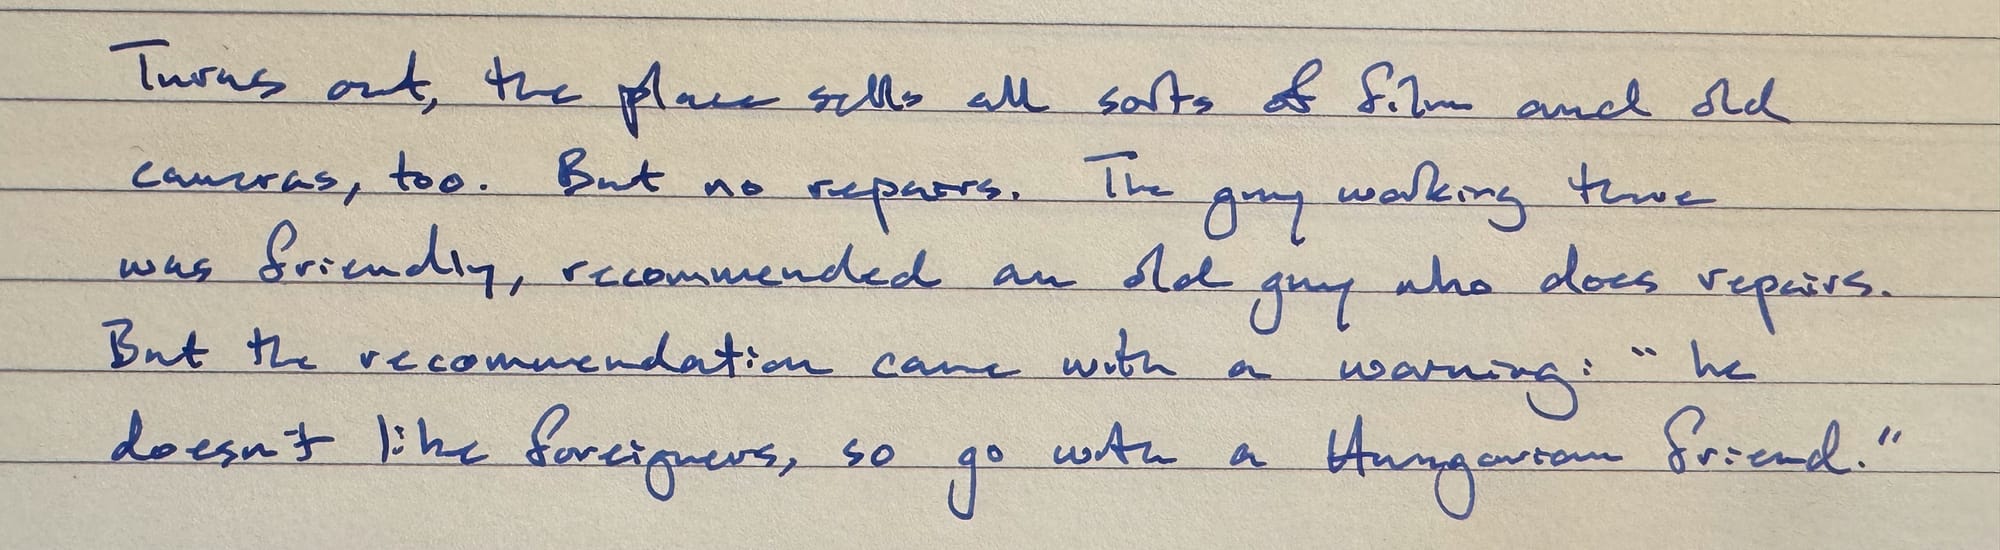 Turns out, the place sells all sorts of film and old
cameras, too. But no repairs. The guy working there
was friendly, recommended an old guy who does repairs.
But the recommendation came with a warning: "he
doesn't like foreigners, so go with a Hungarian friend."